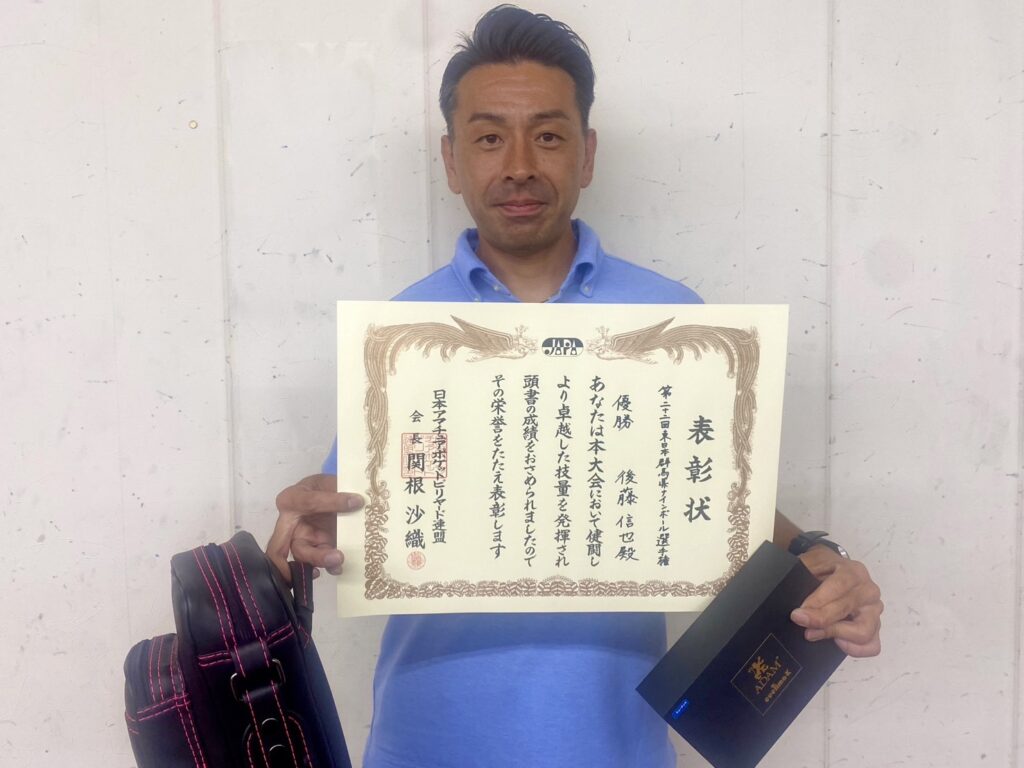 JAPA
表彰状
第二十二回東日本群馬県ナインボール選手権
優勝
後藤信也殿
あなたは本大会において健闘し
より卓越した技量を発揮され
頭書の成績をおさめられましたので
その栄誉をたたえ表彰します
日本アマチュアポケットビリヤード連盟
会長 関根沙織
ADAM